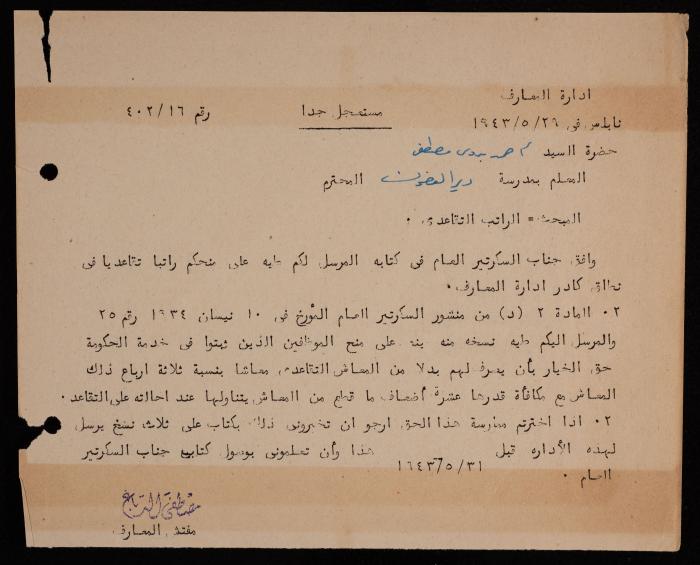 ادارة المعارف
نابلس في ٢٦/٥/١٩٤٣
مستعجل جدا
رقم ٤٠٢/١٦
حضرة السيد مصطفى
المعلم بمدرسة دير الغصون المحترم
المبحث = الراتب التقاعدى .
وافق جناب السكرتير العام في كتابه المرسل لكم طيه على منحكم راتبا تقاعديا في
نطاق كادر ادارة المعارف .
٢. المادة ٢ (د) من منشور السكرتير العام المؤرخ في ١٠ نيسان ١٩٣٤ رقم ٢٥
والمرسل اليكم طيه نسخه منه ينص على منح الموظفين الذين ثبتوا في خدمة الحكومة
حق الخيار بأن يصرف لهم بدلا من المعاش التقاعدى معاشا بنسبة ثلاثة ارباع ذلك
المعاش مع مكافأة قدرها عشرة أضعاف ما قطع من المعاش يتناولها عند احالته على التقاعد .
٢. اذا اخترتم ممارسة هذا الحق ارجو ان تخبروني ذلك بكتاب على ثلاث نسخ يرسل
لهذه الأداره قبل ٣١/٥/١٩٤٣ هذا وأن تعلموني بوصول كتابي جناب السكرتير
العام .
مصطفى الدباغ
مفتش المعارف